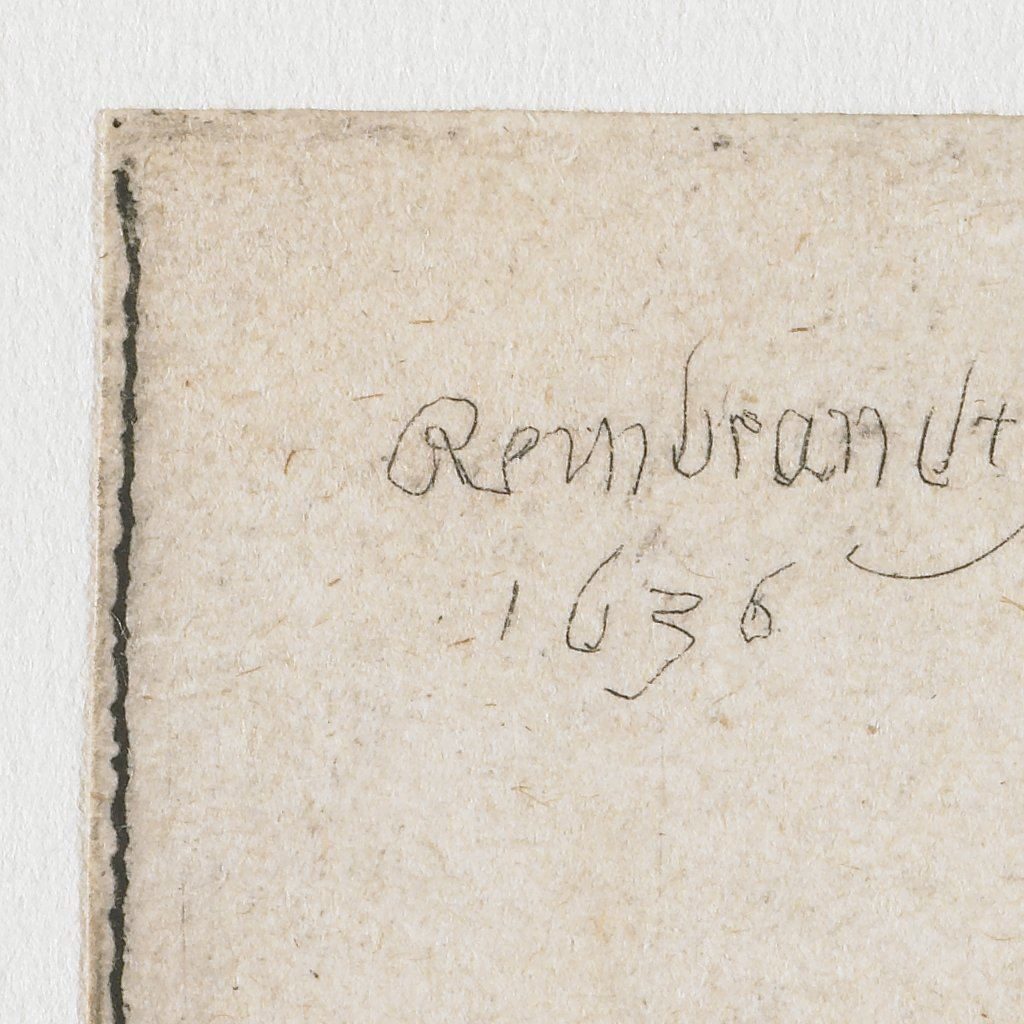 Rembrandt
1636